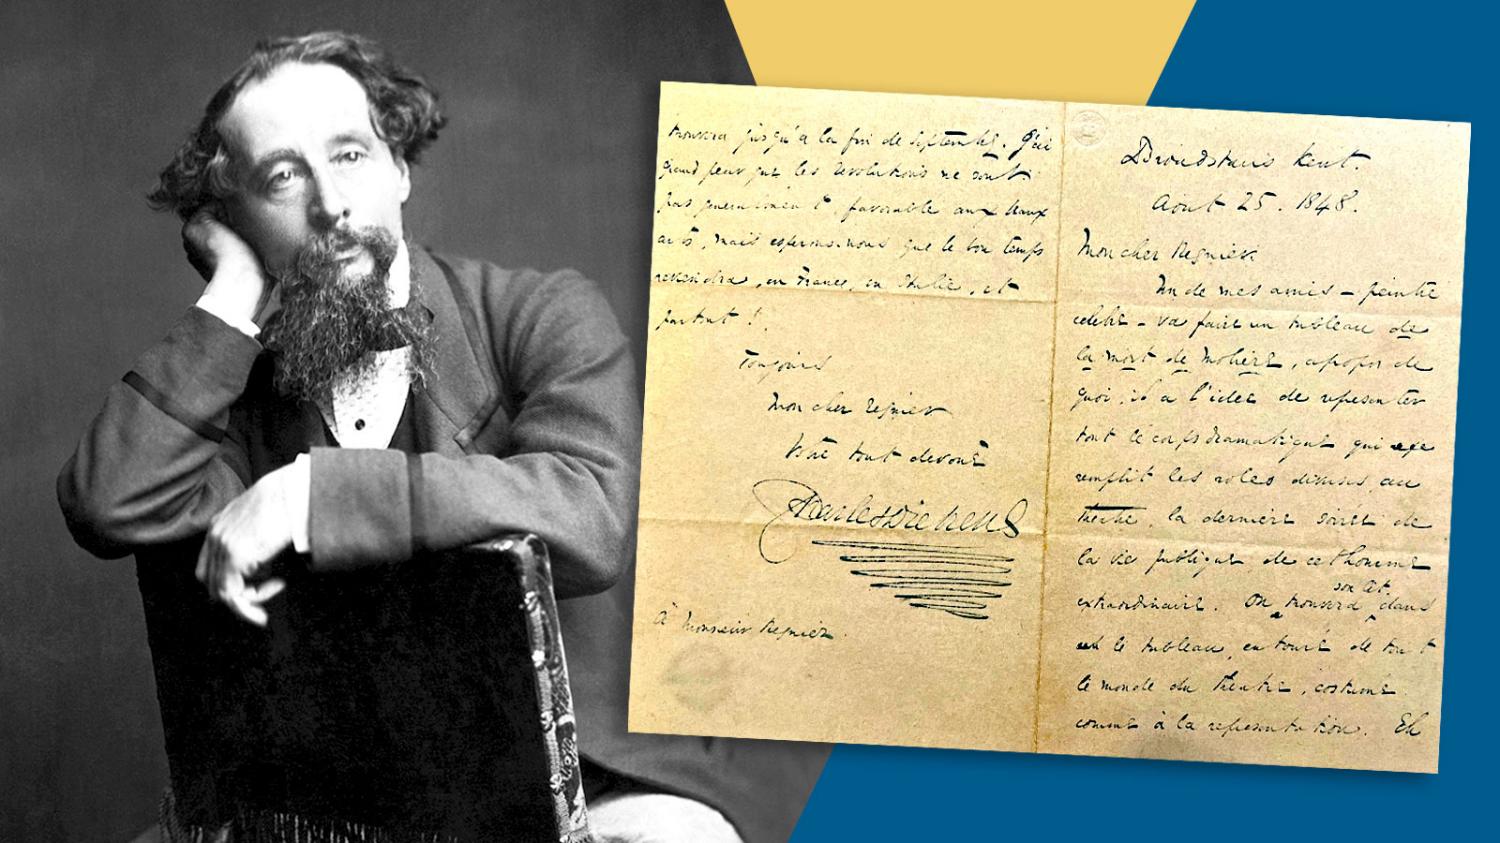 Broadstairs Kent.
Aout 25. 1848.
Mon cher Regnier.
Un de mes amis – peintre
celebre – va faire un tableau de
la mort de Moliére, apropos de
quoi, il a l'idée de representer
tout le corps dramatique qui
remplit les roles divers au
theatre, la derniere soirée de
la vie publique de cet homme
son état
extraordinaire. On trouvera dans
le tableau, entouré de tout
le monde du theatre, costumé
comme à la representation. Et
trouvera jusqu'a la fin de Septembre. J'ai
grand peur que les revolutions ne sont
pas generalement favorable aux beaux
arts, mais esperons-nous que le bon temps
reviendra, en France, en Italie, et
partout !
Toujours
Mon cher Regnier
Votre tout devoué
Charles Dickens
À Monsieur Regnier.